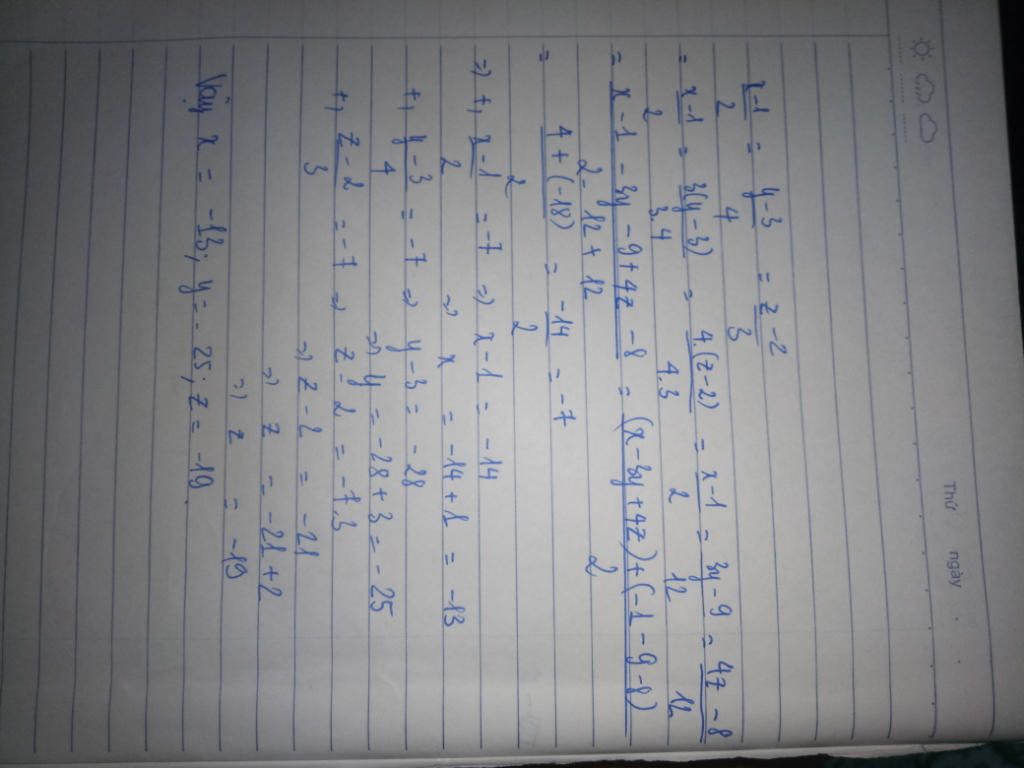 Thứ ngày
x-1/2 = y-3/4 = z-2/3
= x-1/2 = 3(y-3)/3.4 = 4.(z-2)/4.3 = x-1/2 = 3y-9/12 = 4z-8/12
= x-1-3y-9+4z-8/2-12+12 = (x-3y+4z)+(-1-9-8)/2
= 4+(-18)/2 = -14/2 = -7
=> +, x-1/2 = -7 => x-1 = -14
=> x = -14+1 = -13
+, y-3/4 = -7 => y-3 = -28
=> y = -28+3 = -25
+, z-2/3 = -7 => z-2 = -7.3
=> z-2 = -21
=> z = -21+2
=> z = -19
Vậy x = -13; y = -25; z = -19.